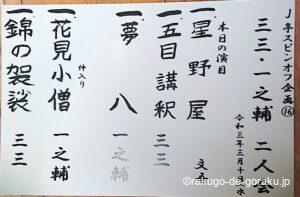 J亭スピンオフ企画⑯
三三・一之輔 二人会
令和三年三月十日 水
本日の演目
一、星野屋 文吾
一、五目講釈 三三
一、夢八 一之輔
仲入り
一、花見小僧 一之輔
一、錦の袈裟 三三
©rakugo-de-goraku.jp